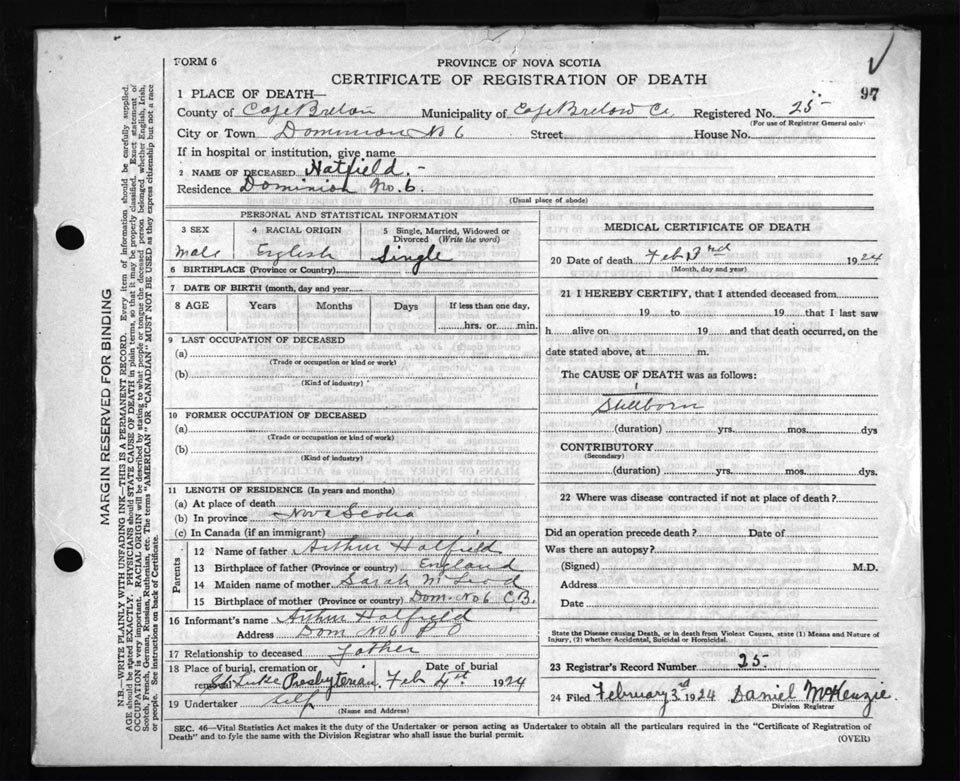 FORM 6
PROVINCE OF NOVA SCOTIA
CERTIFICATE OF REGISTRATION OF DEATH
97
1 PLACE OF DEATH—
County of Cape Breton Municipality of Cape Breton Co Registered No. 25-
(For use of Registrar General only)
City or Town Dominion No 6 Street House No.
If in hospital or institution, give name
2 NAME OF DECEASED Hatfield.-
Residence Dominion No. 6.
(Usual place of abode)
PERSONAL AND STATISTICAL INFORMATION
3 SEX
4 RACIAL ORIGIN
5 Single, Married, Widowed or Divorced (Write the word)
Male English Single
6 BIRTHPLACE (Province or Country)
7 DATE OF BIRTH (month, day and year
8 AGE Years Months Days If less than one day,
hrs. or min.
9 LAST OCCUPATION OF DECEASED
(a)
(Trade or occupation or kind or work)
(b)
(Kind of industry)
10 FORMER OCCUPATION OF DECEASED
(a)
(Trade or occupation or kind of work)
(b)
(Kind of industry)
11 LENGTH OF RESIDENCE (In years and months)
(a) At place of death
(b) In province Nova Scotia
(c) In Canada (if an immigrant)
Parents
12 Name of father Arthur Hatfield
13 Birthplace of father (Province or country) England
14 Maiden name of mother Sarah McLeod
15 Birthplace of mother (Province or country) Dom. No 6 C.B.
16 Informant's name Arthur Hatfield
Address Dom No 6 P O
17 Relationship to deceased Father
18 Place of burial, cremation or Date of burial
removal St Lukes Presbyterian. Feb 4th 1924
19 Undertaker Self
(Name and Address)
MEDICAL CERTIFICATE OF DEATH
20 Date of death Feb 3rd 1924
(Month, day and year)
21 I HEREBY CERTIFY, that I attended deceased from
19 to 19 that I last saw
h alive on 19 and that death occurred, on the
date stated above, at m.
The CAUSE OF DEATH was as follows:
Stillborn
(duration) yrs. mos. dys
CONTRIBUTORY
(Secondary)
(duration) yrs. mos. dys.
22 Where was disease contracted if not at place of death?
Did an operation precede death? Date of
Was there an autopsy?
(Signed) M.D.
Address
Date
State the Disease causing Death, or in death from Violent Causes, state (1) Means and Nature of
Injury, (2) whether Accidental, Suicidal or Homicidal.
23 Registrar's Record Number 25-
24 Filed February 3rd 1924 Daniel McKenzie
Division Registrar
SEC. 46—Vital Statistics Act makes it the duty of the Undertaker or person acting as Undertaker to obtain all the particulars required in the "Certificate of Registration of
Death" and to fyle the same with the Division Registrar who shall issue the burial permit.
(OVER)
MARGIN RESERVED FOR BINDING
N.B.—WRITE PLAINLY WITH UNFADING INK—THIS IS A PERMANENT RECORD. Every item of information should be carefully supplied.
AGE should be stated EXACTLY. PHYSICIANS should STATE CAUSE OF DEATH in plain terms, so that it may be properly classified. Exact statement of
OCCUPATION is very important. RACIAL ORIGIN will be described by stating to what people or tongue the deceased person belonged whether English, Irish,
Scotch, French, German, Russian, Ruthenian, etc. The terms "AMERICAN" OR "CANADIAN" MUST NOT BE USED as they express citizenship but not a race
or people. See instructions on back of Certificate.